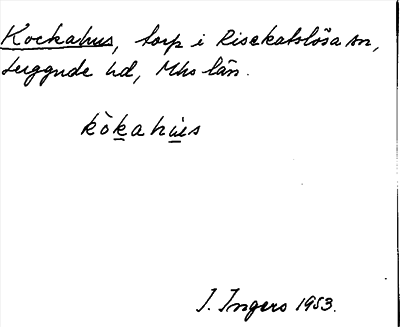 Kockahus, torp i Risekatslösa sn,
Luggude hd, Mhs län.
kòkahùs
I. Ingers 1953.